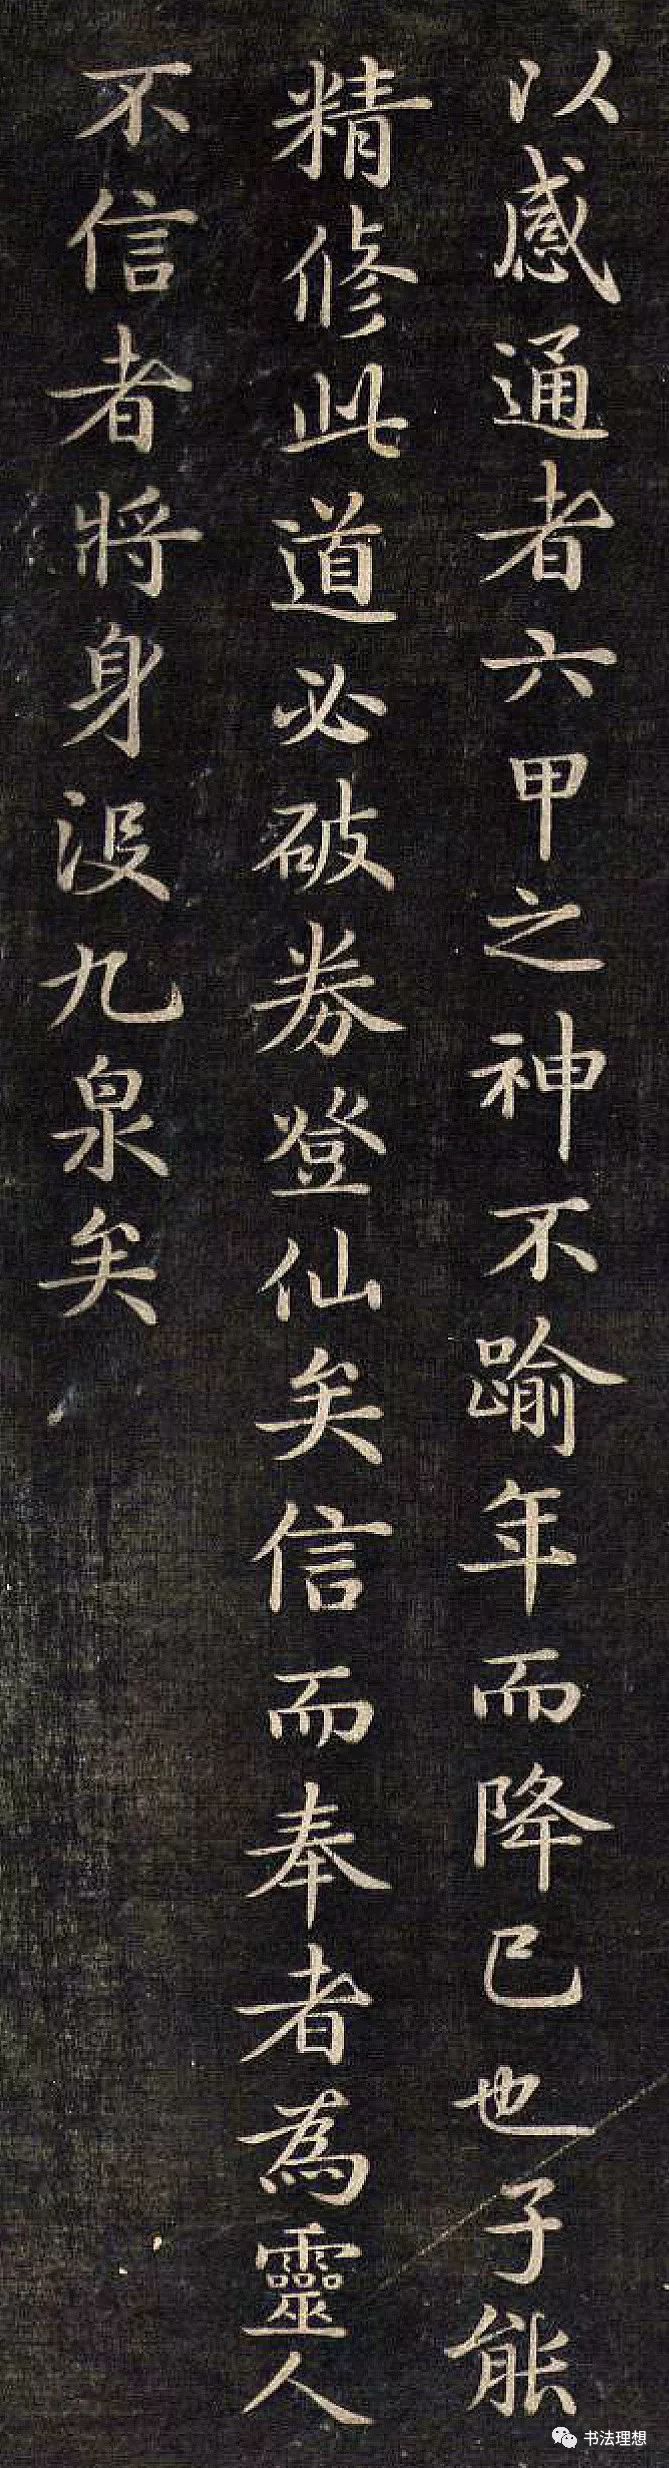 以感通者六甲之神不踰年而降已也子能
精修此道必破券登仙矣信而奉者為靈人
不信者將身没九泉矣
书法理想